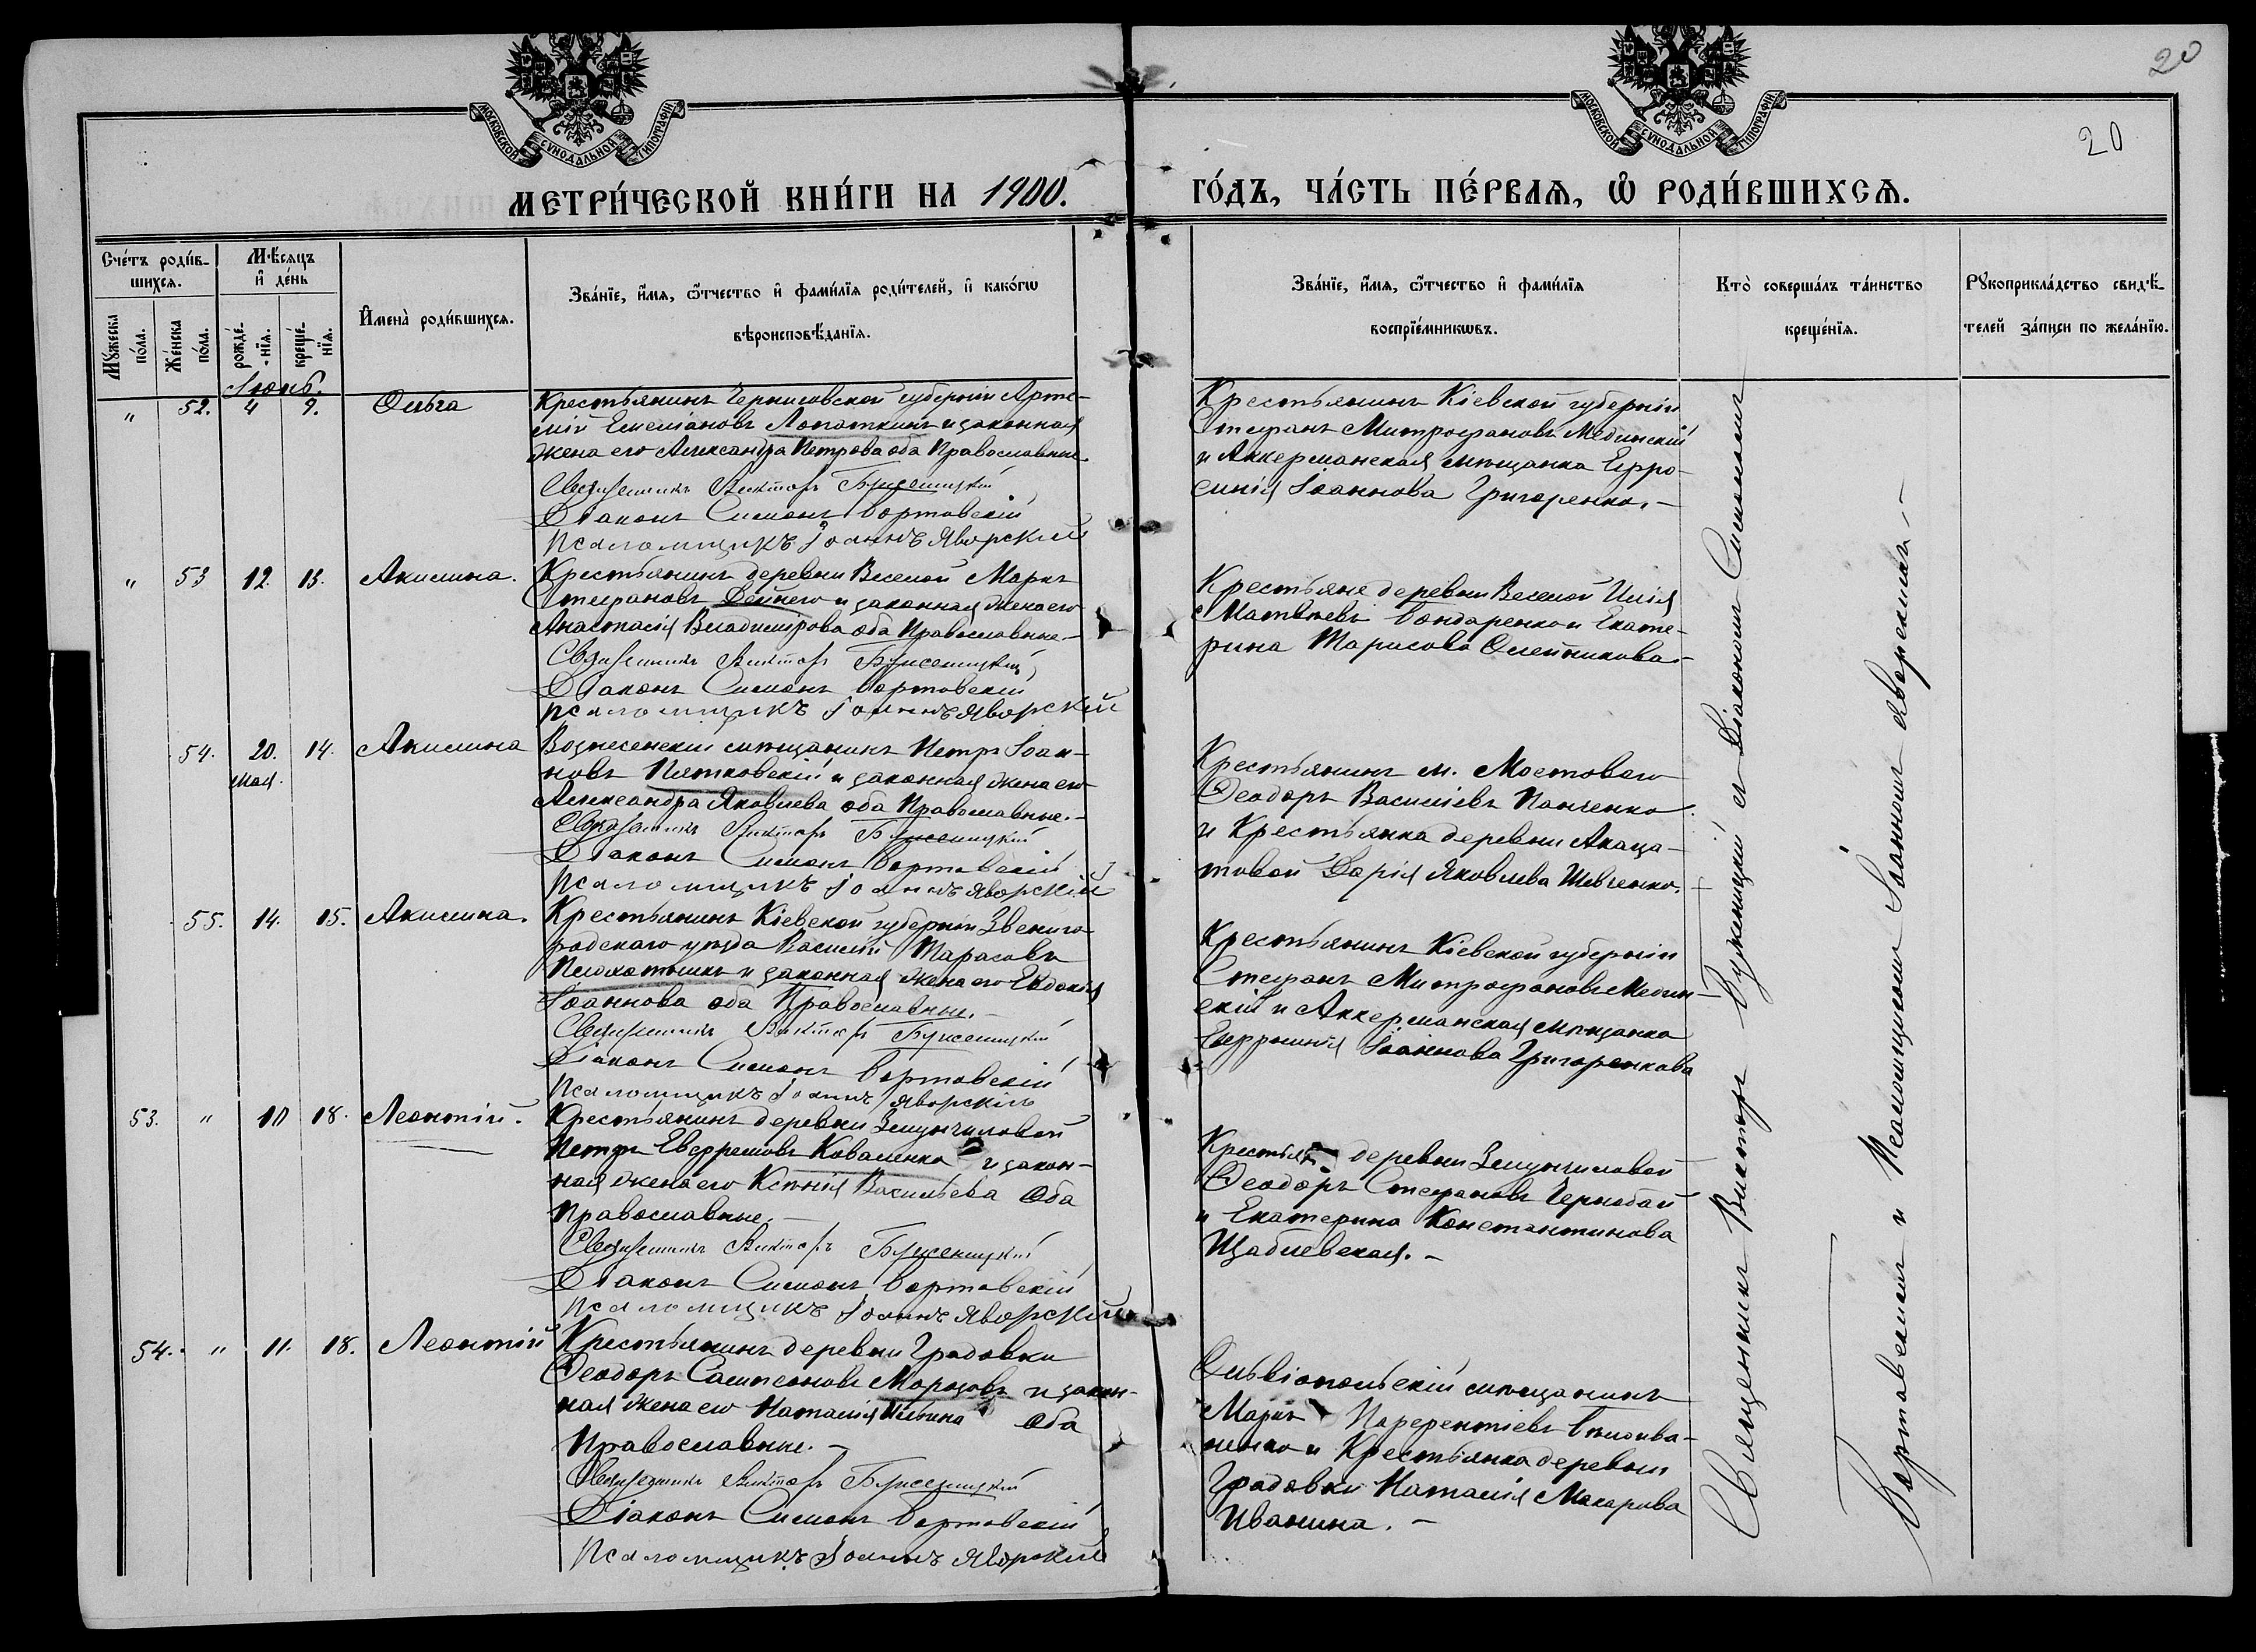 20
20
МОСКОВСКОЙ СУНОДАЛЬНОЙ ТИПОГРАФІИ
МОСКОВСКОЙ СУНОДАЛЬНОЙ ТИПОГРАФІИ
МЕТРИ́ЧЕСКОЙ КНИ́ГИ НА 1900.
ГО́ДЪ, ЧА́СТЬ ПЕ́РВАѦ, Ѡ РОДИ́ВШИХСѦ.
Сче́тъ роди́в-
шихся.
Мѣ́сяцъ
и де́нь
Имена̀ роди́вшихся.
Зва́нїе, и́мя, ѻ́тчество и фами́лїя роди́телей, и како́гѡ
вѣроисповѣ́данїя.
Мꙋ́жеска
по́ла.
Же́нска
по́ла.
рожде́-
нїя.
креще́-
нїя.
Зва́нїе, и́мя, ѻ́тчество и фами́лїя
воспрїе́мникѡвъ.
Кто̀ соверша́лъ та́инство
креще́нїя.
Рꙋкоприкла́дство свидѣ́-
телей за́писи по жела́нїю.
Іюнь.
" 52. 4 9. Ольга
Крестьянинъ Черниговской губерніи Арте-
мій Емеліановъ Лопаткинъ и законная
жена его Александра Петрова оба Православные.
Священникъ Викторъ Буженицкій
Діаконъ Симонъ Бортовскій
Псаломщикъ Іоаннъ Яворскій
Крестьянинъ Кіевской губерніи
Стефанъ Митрофановъ Мединскій
и Аккерманская мѣщанка Евфро-
синія Іоаннова Григоренко. -
" 53 12. 13. Акилина.
Крестьянинъ деревни Веселой Маркъ
Стефановъ Дейнего и законная жена его
Анастасія Владимірова оба Православные. -
Священникъ Викторъ Буженицкій
Діаконъ Симонъ Бортовскій
Псаломщикъ Іоаннъ Яворскій
Крестьяне деревни Веселой Илія
Матвѣевъ Бондаренко и Екате-
рина Тарасова Олейникова. -
54. 20. мая. 14. Акилина
Вознесенскій мѣщанинъ Петръ Іоан-
новъ Пятковскій и законная жена его
Александра Яковлева оба Православные. -
Священникъ Викторъ Буженицкій
Діаконъ Симонъ Бортовскій
Псаломщикъ Іоаннъ Яворскій
Крестьянинъ м. Мостоваго
Ѳеодоръ Василіевъ Панченко
и Крестьянка деревни Акаца-
товой Дарія Яковлева Шевченко.
55. 14. 15. Акилина.
Крестьянинъ Кіевской губерніи Звениго-
родскаго уѣзда Василій Тарасовъ
и законная жена его Евдокія
Іоаннова оба Православные. -
Священникъ Викторъ Буженицкій
Діаконъ Симонъ Бортовскій
Псаломщикъ Іоаннъ Яворскій
Крестьянинъ Кіевской губерніи
Стефанъ Митрофановъ Медин-
скій и Аккерманская мѣщанка
Евфросинія Іоаннова Григоренкова
53. " 10 18. Леонтій.
Крестьянинъ деревни
Петръ Коваленко и закон-
ная жена его Ксенія Васильева Оба
Православные. -
Священникъ Викторъ Буженицкій
Діаконъ Симонъ Бортовскій
Псаломщикъ Іоаннъ Яворскій
деревни
Ѳеодоръ Стефановъ Чернобай
и Екатерина Константинова
Щаблевская. -
54. " 11. 18. Леонтій
Крестьянинъ деревни Градовки
Ѳеодоръ Сампсоновъ Морозовъ и закон-
ная жена его Наталія Ильина Оба
Православные. -
Священникъ Викторъ Буженицкій
Діаконъ Симонъ Бортовскій
Псаломщикъ Іоаннъ Яворскій
Ольвіопольскій мѣщанинъ
Маркъ
и Крестьянка деревни
Градовки Наталія Макарива
Иванина. -
Священникъ Викторъ Буженицкій съ Діакономъ Симономъ
Бортовскимъ и Псаломщикомъ Іоанномъ Яворскимъ. -